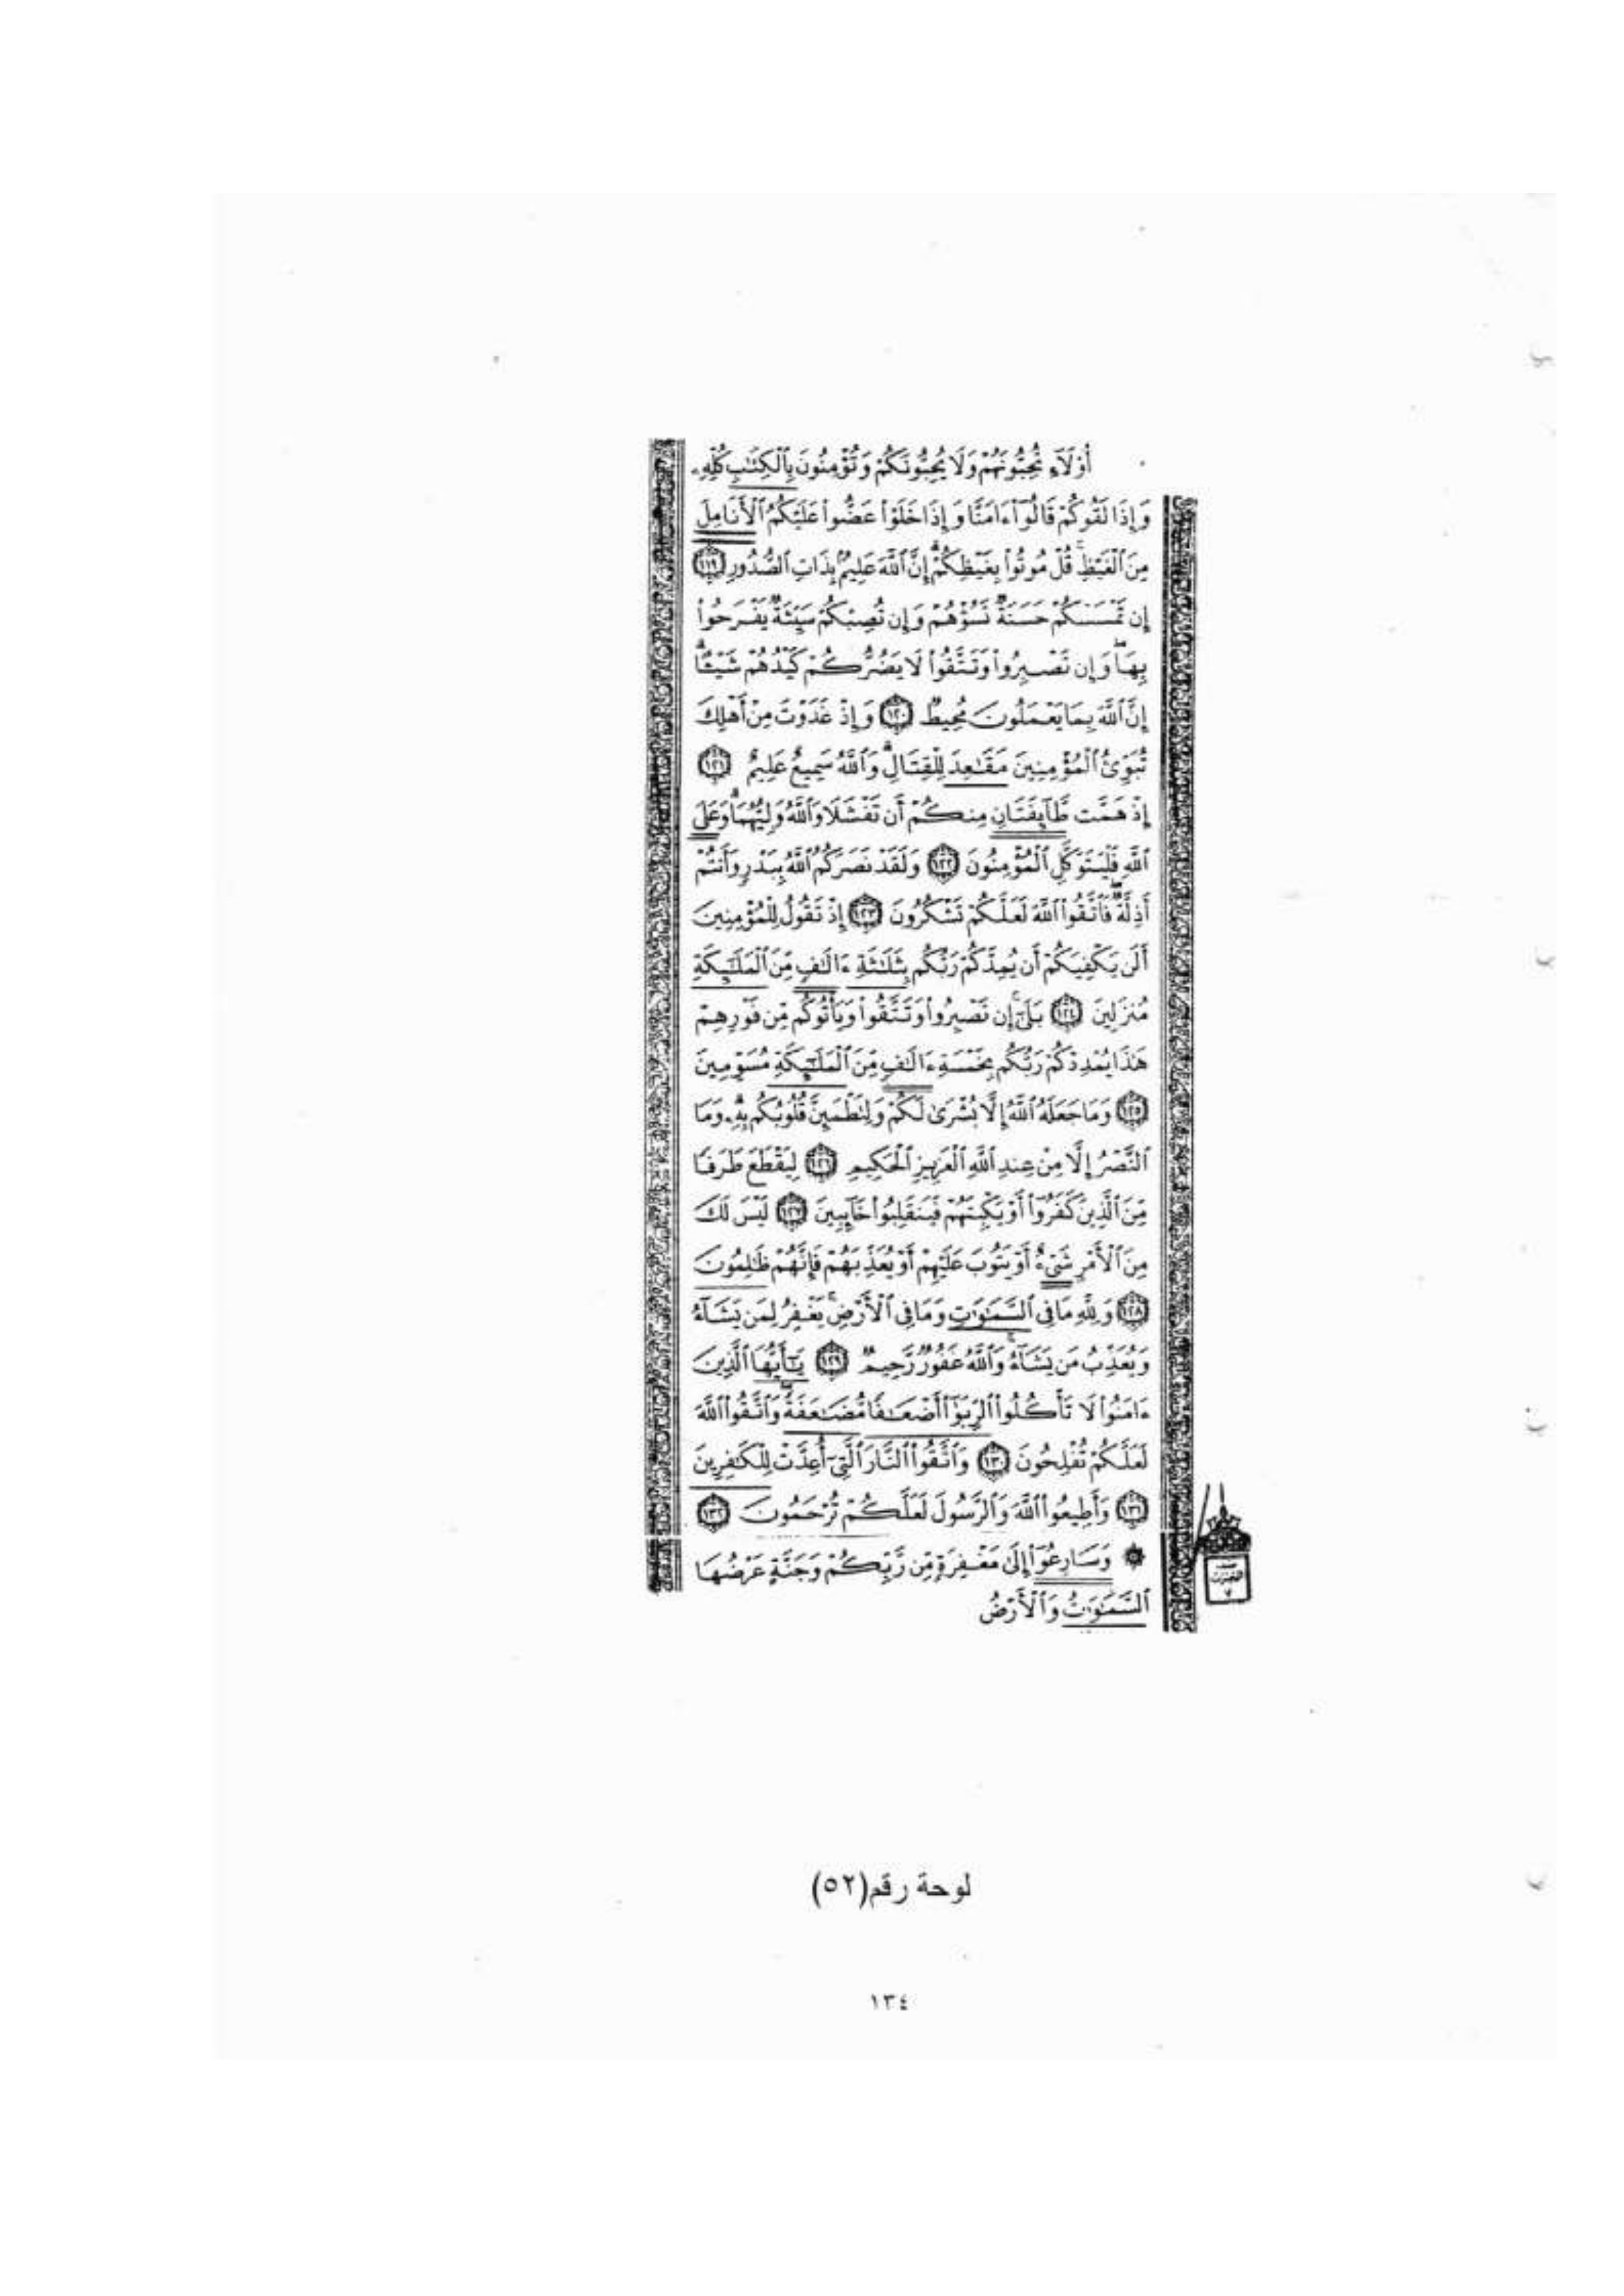 أُوْلَآءِ تُحِبُّونَهُمْ وَلَا يُحِبُّونَكُمْ وَتُؤْمِنُونَ بِٱلْكِتَٰبِ كُلِّهِۦ
وَإِذَا لَقُوكُمْ قَالُوٓا۟ ءَامَنَّا وَإِذَا خَلَوْا۟ عَضُّوا۟ عَلَيْكُمُ ٱلْأَنَامِلَ
مِنَ ٱلْغَيْظِ ۚ قُلْ مُوتُوا۟ بِغَيْظِكُمْ ۗ إِنَّ ٱللَّهَ عَلِيمٌۢ بِذَاتِ ٱلصُّدُورِ ١١٩
إِن تَمْسَسْكُمْ حَسَنَةٌ تَسُؤْهُمْ وَإِن تُصِبْكُمْ سَيِّئَةٌ يَفْرَحُوا۟
بِهَا ۖ وَإِن تَصْبِرُوا۟ وَتَتَّقُوا۟ لَا يَضُرُّكُمْ كَيْدُهُمْ شَيْـًٔا ۗ
إِنَّ ٱللَّهَ بِمَا يَعْمَلُونَ مُحِيطٌ ١٢٠ وَإِذْ غَدَوْتَ مِنْ أَهْلِكَ
تُبَوِّئُ ٱلْمُؤْمِنِينَ مَقَٰعِدَ لِلْقِتَالِ ۗ وَٱللَّهُ سَمِيعٌ عَلِيمٌ ١٢١
إِذْ هَمَّت طَّآئِفَتَانِ مِنكُمْ أَن تَفْشَلَا وَٱللَّهُ وَلِيُّهُمَا ۗ وَعَلَى
ٱللَّهِ فَلْيَتَوَكَّلِ ٱلْمُؤْمِنُونَ ١٢٢ وَلَقَدْ نَصَرَكُمُ ٱللَّهُ بِبَدْرٍ وَأَنتُمْ
أَذِلَّةٌ ۖ فَٱتَّقُوا۟ ٱللَّهَ لَعَلَّكُمْ تَشْكُرُونَ ١٢٣ إِذْ تَقُولُ لِلْمُؤْمِنِينَ
أَلَن يَكْفِيَكُمْ أَن يُمِدَّكُمْ رَبُّكُم بِثَلَٰثَةِ ءَالَٰفٍ مِّنَ ٱلْمَلَٰٓئِكَةِ
مُنزَلِينَ ١٢٤ بَلَىٰٓ ۚ إِن تَصْبِرُوا۟ وَتَتَّقُوا۟ وَيَأْتُوكُم مِّن فَوْرِهِمْ
هَٰذَا يُمْدِدْكُمْ رَبُّكُم بِخَمْسَةِ ءَالَٰفٍ مِّنَ ٱلْمَلَٰٓئِكَةِ مُسَوِّمِينَ
١٢٥ وَمَا جَعَلَهُ ٱللَّهُ إِلَّا بُشْرَىٰ لَكُمْ وَلِتَطْمَئِنَّ قُلُوبُكُم بِهِۦ ۗ وَمَا
ٱلنَّصْرُ إِلَّا مِنْ عِندِ ٱللَّهِ ٱلْعَزِيزِ ٱلْحَكِيمِ ١٢٦ لِيَقْطَعَ طَرَفًا
مِّنَ ٱلَّذِينَ كَفَرُوٓا۟ أَوْ يَكْبِتَهُمْ فَيَنقَلِبُوا۟ خَآئِبِينَ ١٢٧ لَيْسَ لَكَ
مِنَ ٱلْأَمْرِ شَىْءٌ أَوْ يَتُوبَ عَلَيْهِمْ أَوْ يُعَذِّبَهُمْ فَإِنَّهُمْ ظَٰلِمُونَ
١٢٨ وَلِلَّهِ مَا فِى ٱلسَّمَٰوَٰتِ وَمَا فِى ٱلْأَرْضِ ۚ يَغْفِرُ لِمَن يَشَآءُ
وَيُعَذِّبُ مَن يَشَآءُ ۚ وَٱللَّهُ غَفُورٌ رَّحِيمٌ ١٢٩ يَٰٓأَيُّهَا ٱلَّذِينَ
ءَامَنُوا۟ لَا تَأْكُلُوا۟ ٱلرِّبَوٰٓا۟ أَضْعَٰفًا مُّضَٰعَفَةً ۖ وَٱتَّقُوا۟ ٱللَّهَ
لَعَلَّكُمْ تُفْلِحُونَ ١٣٠ وَٱتَّقُوا۟ ٱلنَّارَ ٱلَّتِىٓ أُعِدَّتْ لِلْكَٰفِرِينَ
١٣١ وَأَطِيعُوا۟ ٱللَّهَ وَٱلرَّسُولَ لَعَلَّكُمْ تُرْحَمُونَ ١٣٢
۞ وَسَارِعُوٓا۟ إِلَىٰ مَغْفِرَةٍ مِّن رَّبِّكُمْ وَجَنَّةٍ عَرْضُهَا
ٱلسَّمَٰوَٰتُ وَٱلْأَرْضُ
لوحة رقم(٥٢)
١٣٤